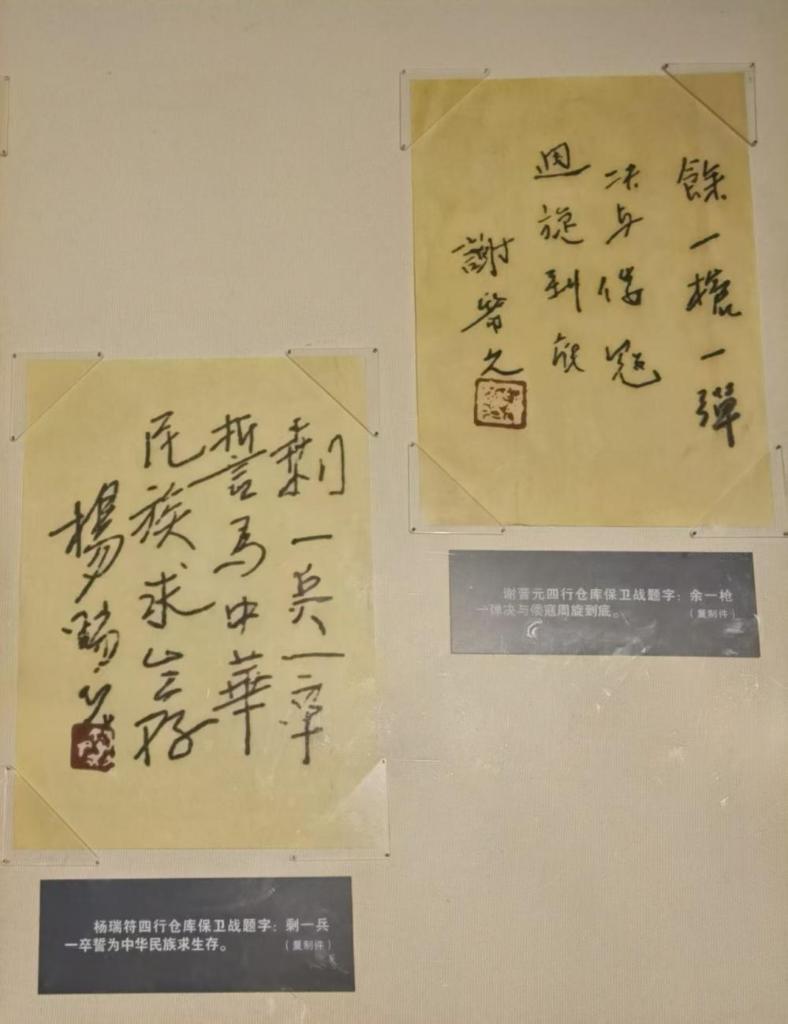 餘一槍一彈
决与倭寇
週旋到底
謝晉元
谢晋元四行仓库保卫战题字：余一枪
一弹决与倭寇周旋到底。
（复制件）
剩一兵一卒
誓為中華
民族求生存
楊瑞符
杨瑞符四行仓库保卫战题字：剩一兵
一卒誓为中华民族求生存。
（复制件）